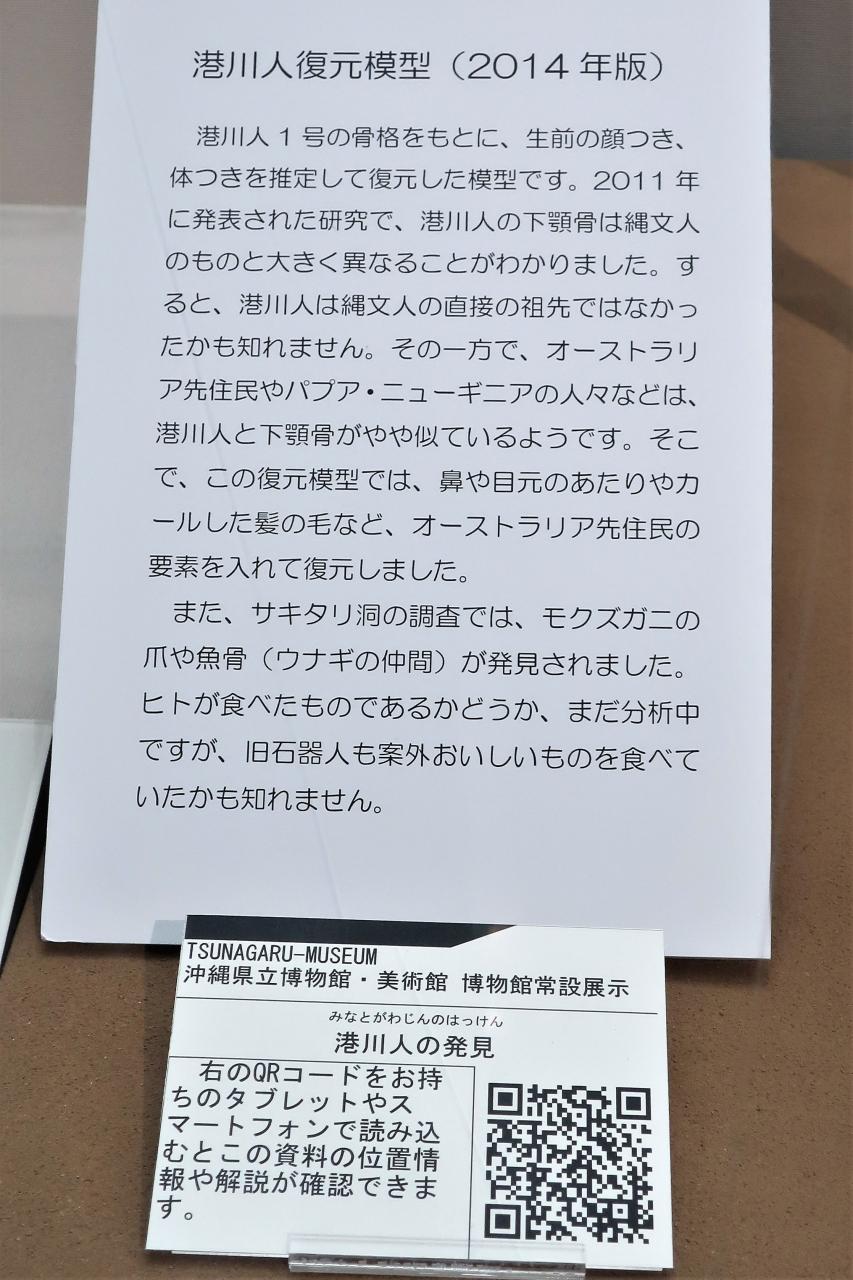 港川人復元模型（2014 年版）
港川人 1 号の骨格をもとに、生前の顔つき、
体つきを推定して復元した模型です。2011 年
に発表された研究で、港川人の下顎骨は縄文人
のものと大きく異なることがわかりました。す
ると、港川人は縄文人の直接の祖先ではなかっ
たかも知れません。その一方で、オーストラリ
ア先住民やパプア・ニューギニアの人々などは、
港川人と下顎骨がやや似ているようです。そこ
で、この復元模型では、鼻や目元のあたりやカ
ールした髪の毛など、オーストラリア先住民の
要素を入れて復元しました。
また、サキタリ洞の調査では、モクズガニの
爪や魚骨（ウナギの仲間）が発見されました。
ヒトが食べたものであるかどうか、まだ分析中
ですが、旧石器人も案外おいしいものを食べて
いたかも知れません。
TSUNAGARU-MUSEUM
沖縄県立博物館・美術館 博物館常設展示
みなとがわじんのはっけん
港川人の発見
右のQRコードをお持
ちのタブレットやス
マートフォンで読み込
むとこの資料の位置情
報や解説が確認できま
す。